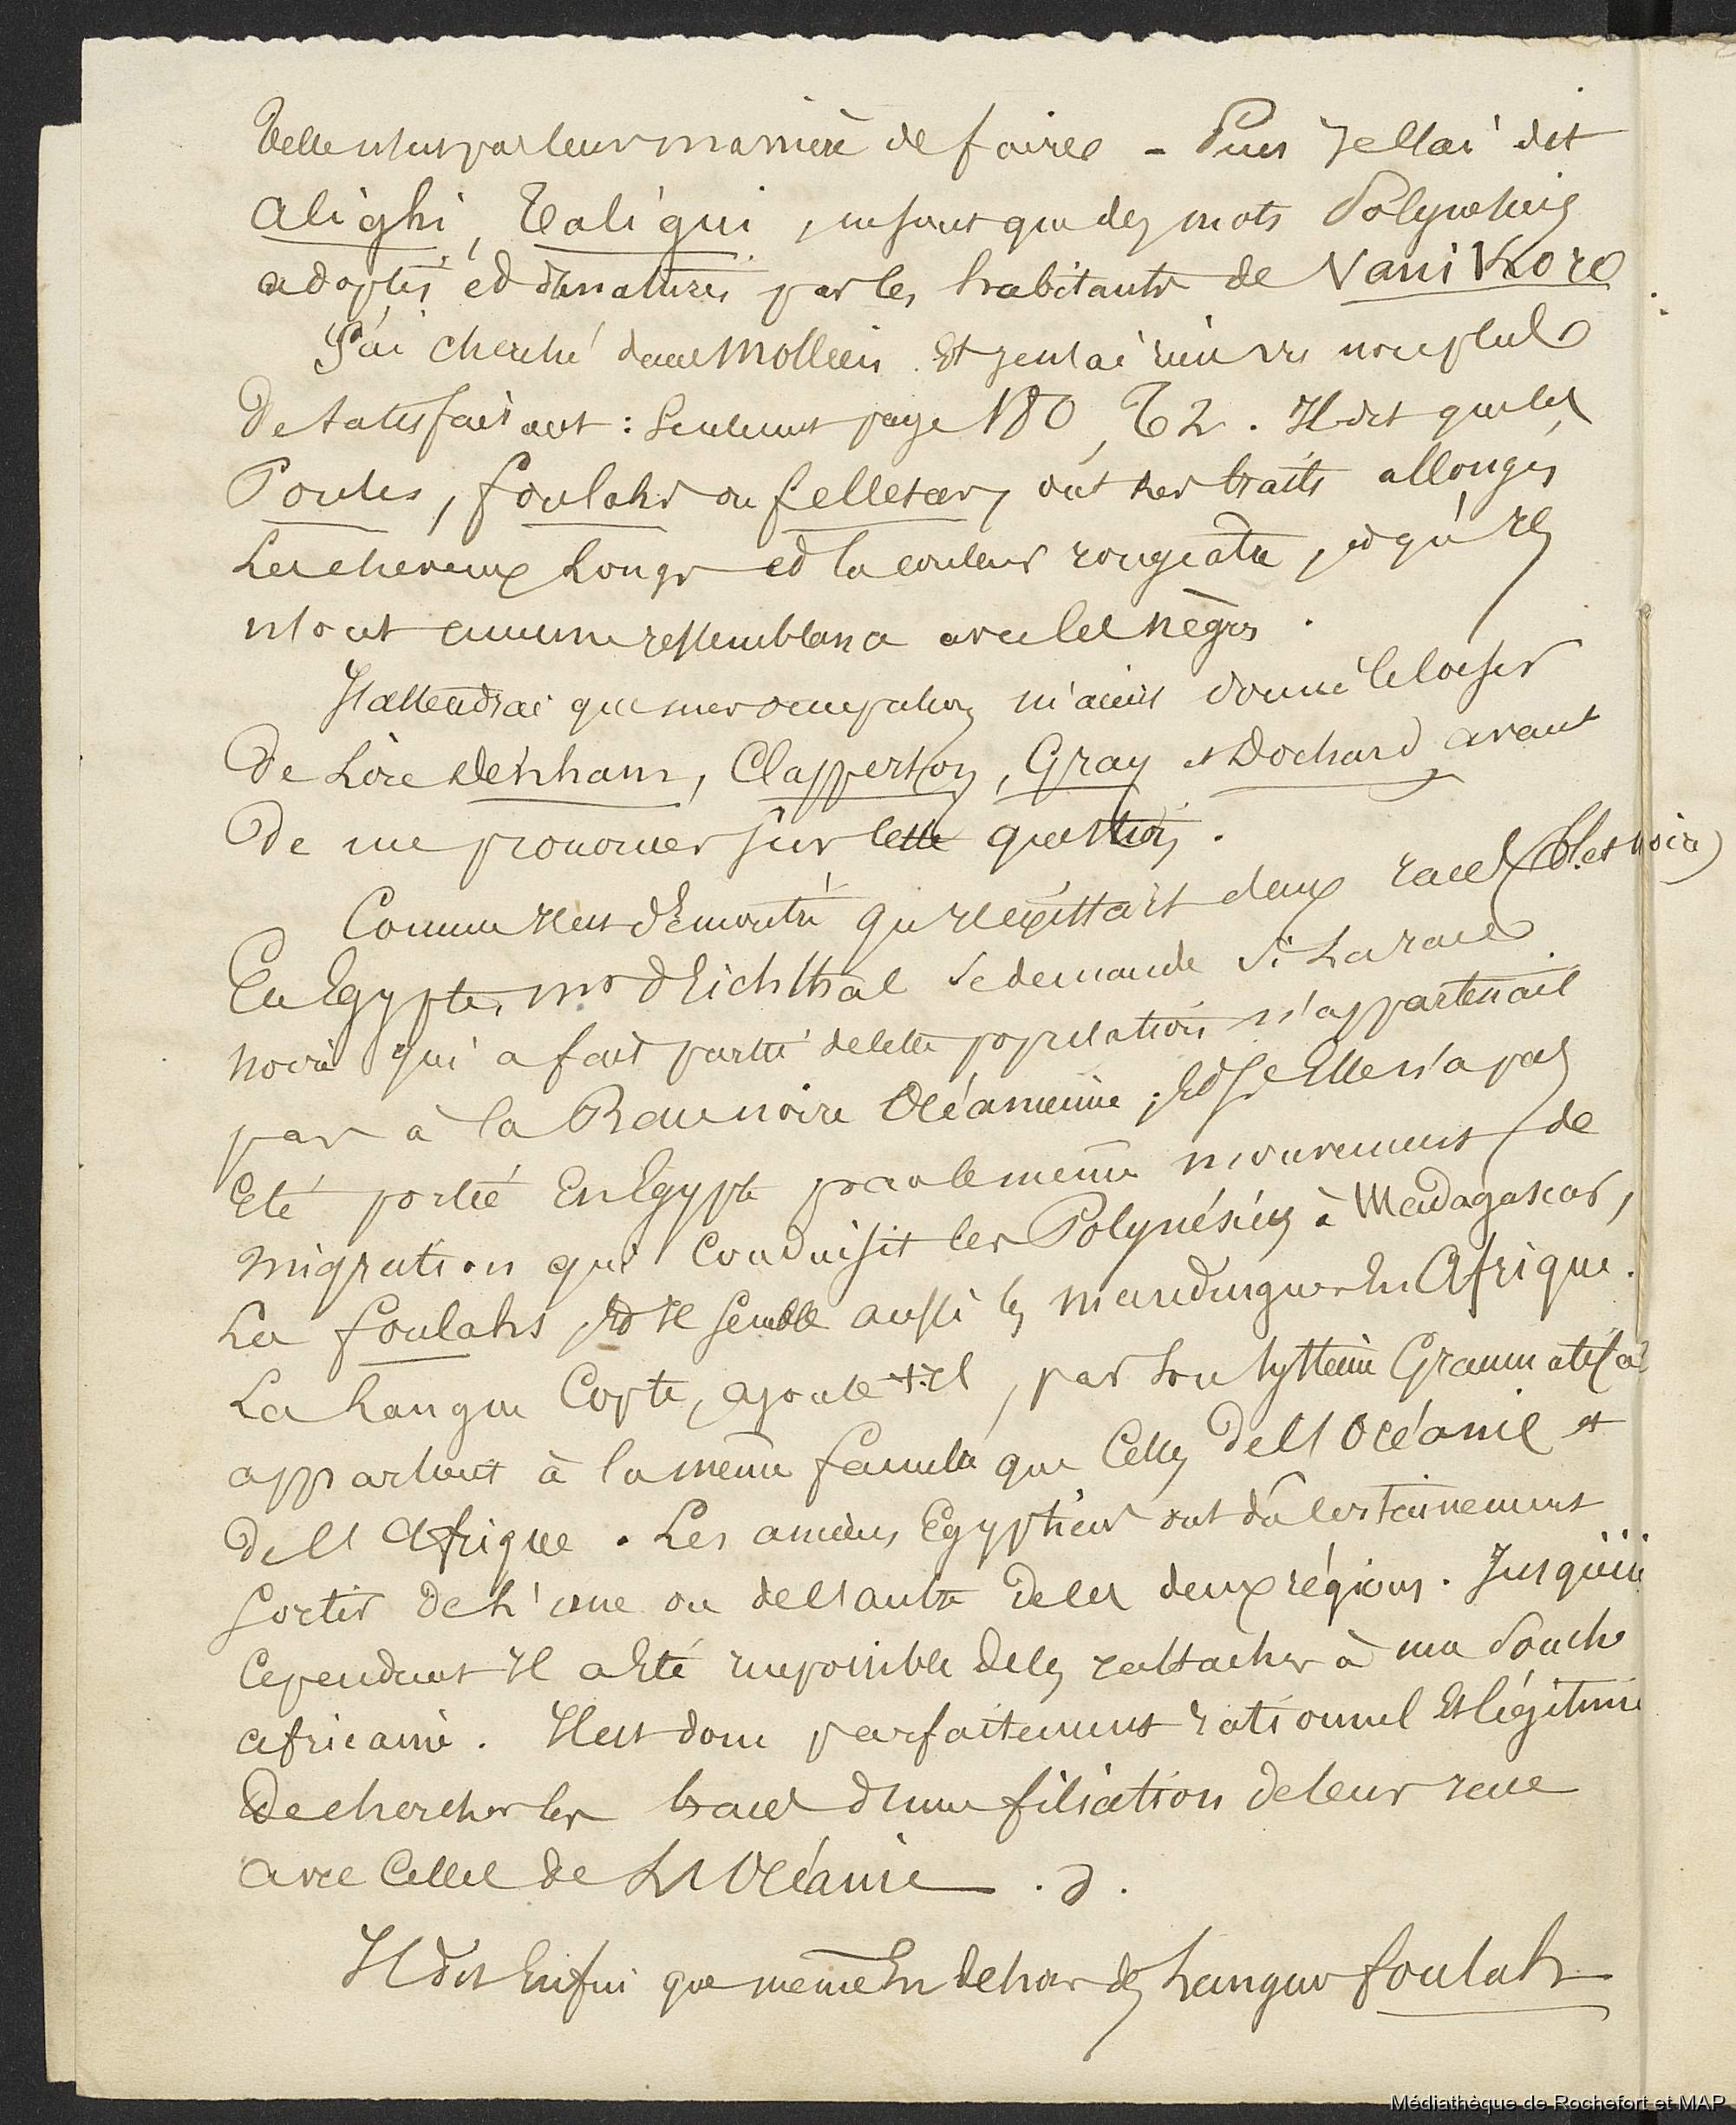 par leur manière de faire - Puis Je l'ai dit
alighi, Taligui, ne sont que des mots Polynésiens
adoptés et dénaturés par les habitants de Vanikoro
J'ai cherché dans Mollien. Et Je n'ai rien vu non plus
De satisfaisant : Seulement page 180, T2. Il dit que les
Poules, foulahs ou fellatas, ont les traits allongés
Les cheveux Longs et la couleur rougeatre, et qu'Ils
n'ont aucune ressemblance avec les nègres.
J'attendrai que mes occupations m'aient donné le loisir
De Lire Denham, Clapperton, Gray et Dochard avant
De me prononcer sur cette question.
Comme Il est démontré qu'Il existait deux races (bl. et noire)
En Egypte, Mr d'Eichthal se demande Si La race
noire qui a fait partie de cette population n'appartenait
pas à la Race noire Océanienne, Et Si Elle n'a pas
Eté portée En Egypte par le même mouvement de
migration qui Conduisit les Polynésiens à Madagascar,
Les foulahs, Et Il semble aussi les mandingues En Afrique.
La Langue Copte, ajoute-t-Il, par son système Grammatical
appartient à la même famille que Celles De l'Océanie et
De l'Afrique. Les anciens Egyptiens ont dû Certainement
Sortir De L'une ou de l'autre De ces deux régions. Jusqu'ici
Cependant Il a Eté impossible De les rattacher à une Souche
africaine. Il est donc parfaitement rationnel Et légitime
De chercher les traces d'une filiation de leur race
avec Celles de L'Océanie. d.
Il dit Enfin que même En dehors des Langues foulah
Médiathèque de Rochefort et MAP